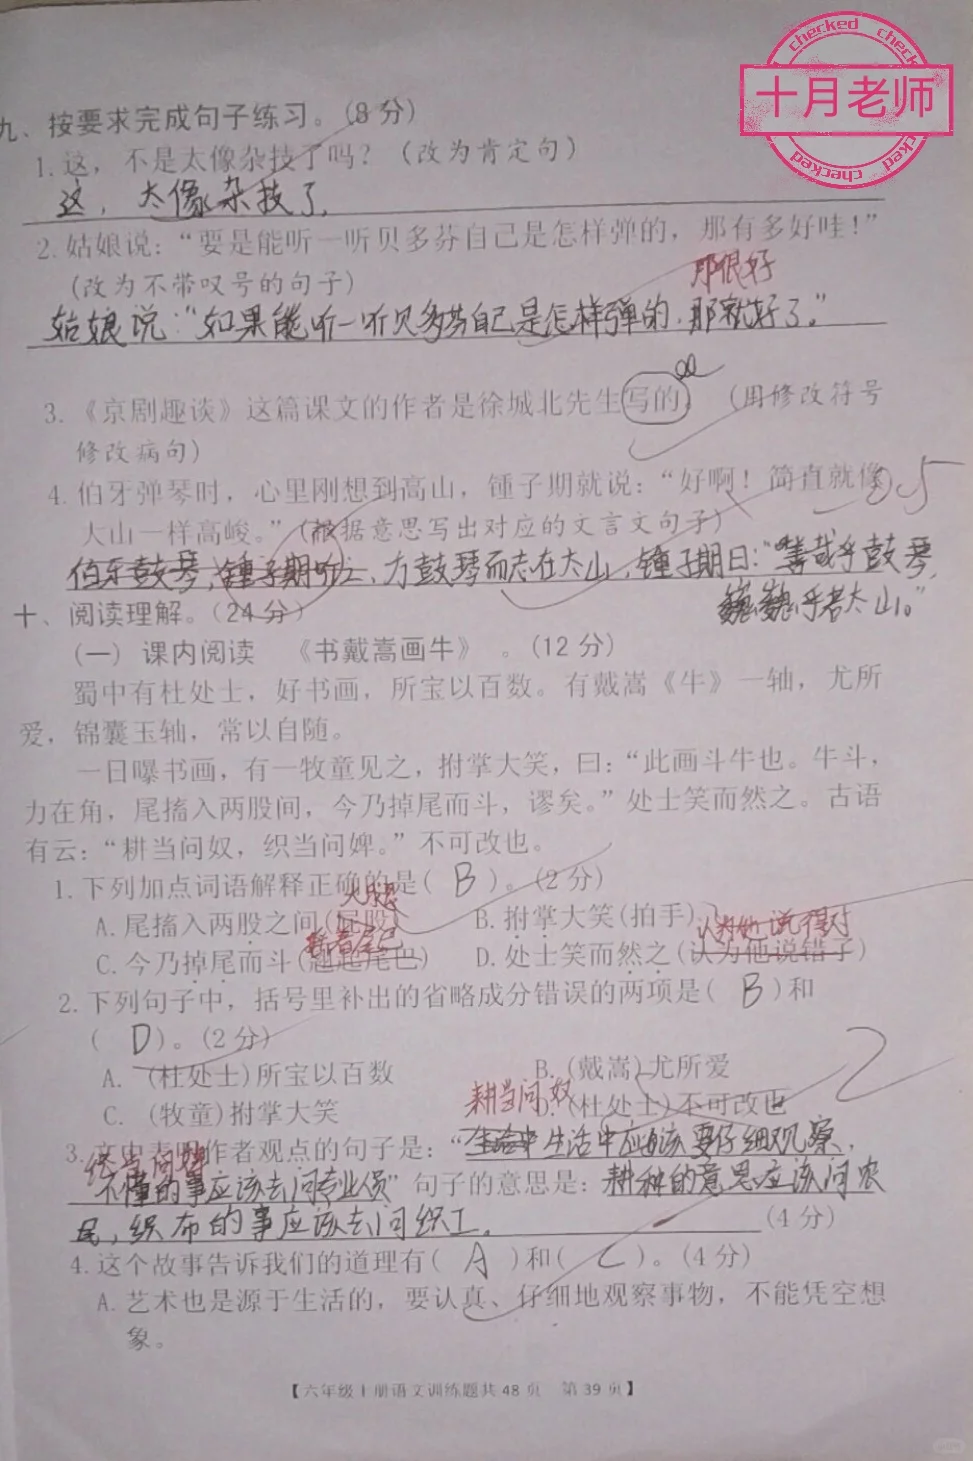 checked
十月老师
checked
九、按要求完成句子练习。(8分)
1.这，不是太像杂技了吗？(改为肯定句)
这，太像杂技了。
2.姑娘说：“要是能听一听贝多芬自己是怎样弹的，那有多好哇！”
那很好
(改为不带叹号的句子)
姑娘说：“如果能听一听贝多芬自己是怎样弹的，那就好了。”
3.《京剧趣谈》这篇课文的作者是徐城北先生写的。(用修改符号
修改病句)
4.伯牙弹琴时，心里刚想到高山，锺子期就说：“好啊！简直就像
大山一样高峻。”(根据意思写出对应的文言文句子)
伯牙鼓琴，锺子期听之，方鼓琴而志在太山，锺子期曰：“善哉乎鼓琴，
巍巍乎若太山。”
十、阅读理解。(24分)
(一) 课内阅读 《书戴嵩画牛》 。(12分)
蜀中有杜处士，好书画，所宝以百数。有戴嵩《牛》一轴，尤所
爱，锦囊玉轴，常以自随。
一日曝书画，有一牧童见之，拊掌大笑，曰：“此画斗牛也。牛斗，
力在角，尾搐入两股间，今乃掉尾而斗，谬矣。”处士笑而然之。古语
有云：“耕当问奴，织当问婢。”不可改也。
1.下列加点词语解释正确的是( B )。(2分)
大腿
A.尾搐入两股之间(屁股) B.拊掌大笑(拍手)
认为他说得对
C.今乃掉尾而斗(翘起尾巴) D.处士笑而然之(认为他说错了)
2.下列句子中，括号里补出的省略成分错误的两项是( B )和
( D )。(2分)
A. (杜处士)所宝以百数 B.(戴嵩)尤所爱
C. (牧童)拊掌大笑 D.(杜处士)不可改也
耕当问奴
3.文中表明作者观点的句子是：“生活中应该要仔细观察，
织当问婢
不懂的事应该去问专业人员”句子的意思是：耕种的意思应该问农
民，织布的事应该去问织工。(4分)
4.这个故事告诉我们的道理有( A )和( C )。(4分)
A.艺术也是源于生活的，要认真、仔细地观察事物，不能凭空想
象。
【六年级上册语文训练题共48页 第39页】